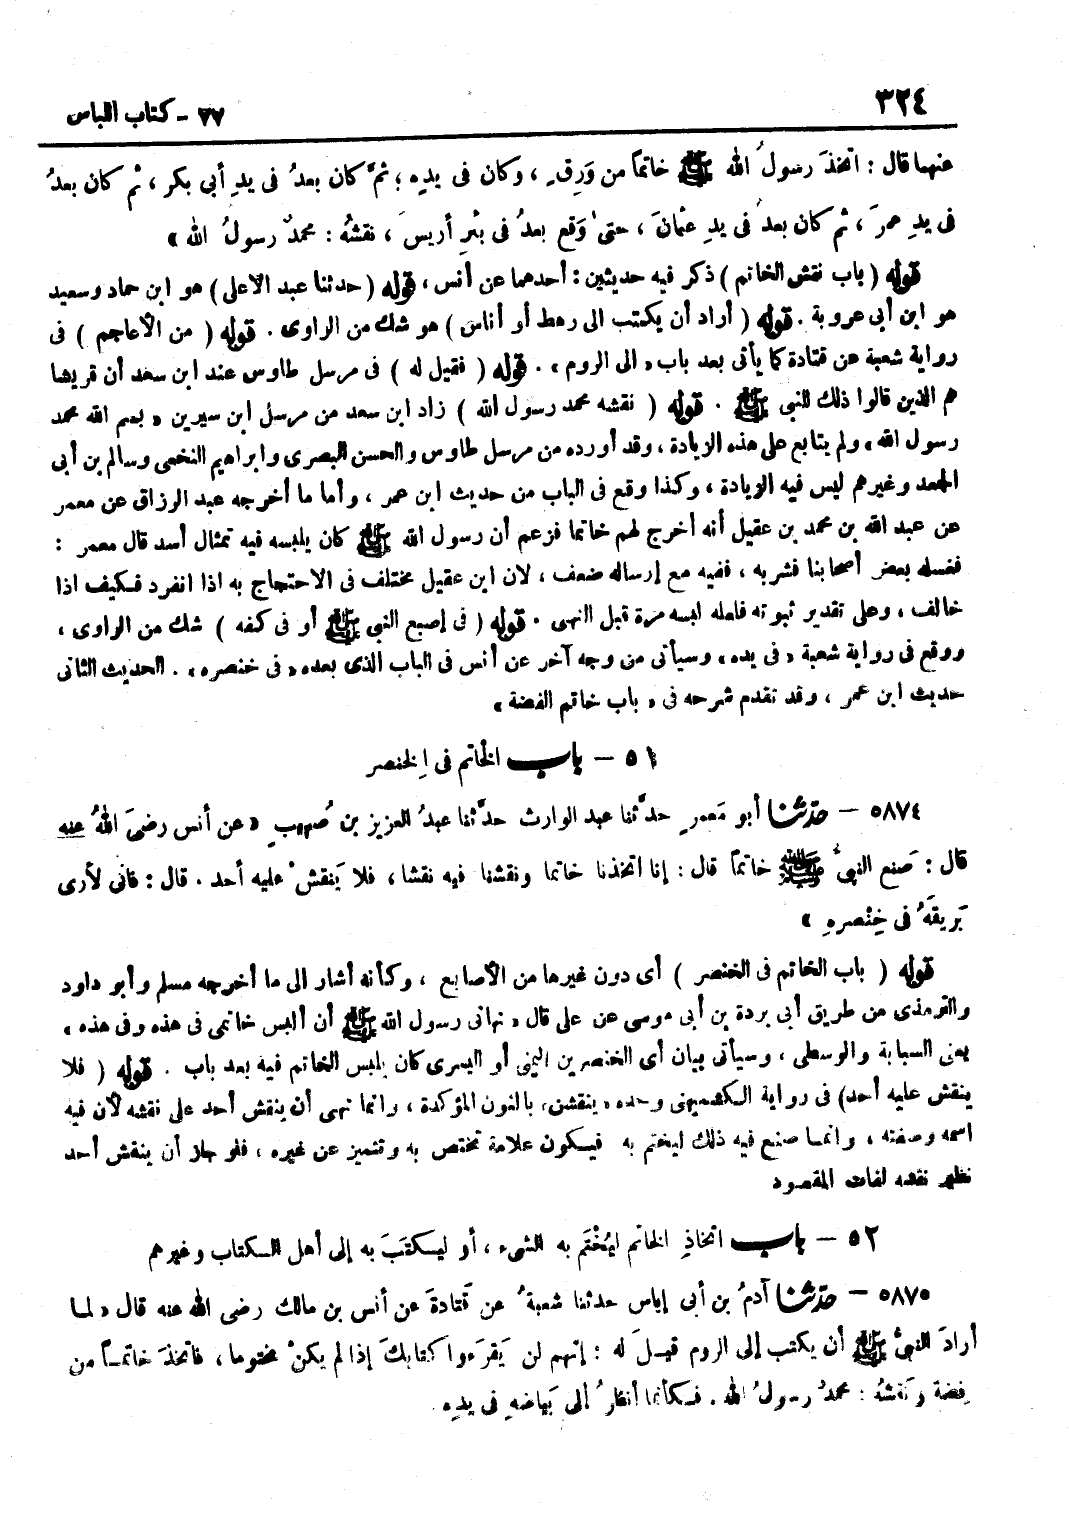 ٣٢٤
٧٧ - كتاب اللباس
عنهما قال : اتخذَ رسولُ الله ﷺ خاتماً من وَرِقٍ ، وكان فى يدِه ؛ ثمَّ كان بعدُ فى يدِ أبى بكر ، ثم كان بعدُ
فى يدِ عمرَ ، ثم كان بعدُ فى يدِ عثمانَ ، حتىٰ وَقع بعدُ فى بئرِ أريس ، نقشُه : محمدٌ رسولُ الله »
قوله ( باب نقش الخاتم ) ذكر فيه حديثين : أحدهما عن أنس ، قوله ( حدثنا عبد الاعلى ) هو ابن حماد وسعيد
هو ابن أبى عروبة . قوله ( أراد أن يكتب الى رهط أو أناس ) هو شك من الراوى . قوله ( من الأعاجم ) فى
رواية شعبة عن قتادة كما يأتى بعد باب « الى الروم » . قوله ( فقيل له ) فى مرسل طاوس عند ابن سعد أن قريشا
هم الذين قالوا ذلك للنبى ﷺ . قوله ( نقشه محمد رسول الله ) زاد ابن سعد من مرسل ابن سيرين « بسم الله محمد
رسول الله » ولم يتابع على هذه الزيادة ، وقد أورده من مرسل طاوس والحسن البصرى وابراهيم النخعى وسالم بن أبى
الجعد وغيرهم ليس فيه الزيادة ، وكذا وقع فى الباب من حديث ابن عمر ، وأما ما أخرجه عبد الرزاق عن معمر
عن عبد الله بن محمد بن عقيل أنه أخرج لهم خاتما فزعم أن رسول الله ﷺ كان يلبسه فيه تمثال أسد قال معمر :
فغسله بعض أصحابنا فشربه ، ففيه مع إرساله ضعف ، لان ابن عقيل مختلف فى الاحتجاج به اذا انفرد فكيف اذا
خالف ، وعلى تقدير ثبوته فلعله لبسه مرة قبل النهى . قوله ( فى إصبع النبى ﷺ أو فى كفه ) شك من الراوى ،
ووقع فى رواية شعبة « فى يده » وسيأتى من وجه آخر عن أنس فى الباب الذى بعده « فى خنصره » . الحديث الثانى
حديث ابن عمر ، وقد تقدم شرحه فى « باب خاتم الفضة »
٥١ - باب الخاتم فى الخِنصر
٥٨٧٤ - حدّثنا أبو مَعمرٍ حدَّثنا عبد الوارث حدَّثنا عبدُ العزيز بن صُهيبٍ « عن أنس رضىَ اللهُ عنه
قال : صَنع النبىُّ ﷺ خاتماً قال : إنا اتخذنا خاتما ونقشنا فيه نقشا ، فلا يَنقشْ عليه أحد . قال : فانى لأرى
بَريقَهُ فى خِنْصرهِ »
قوله ( باب الخاتم فى الخنصر ) أى دون غيرها من الأصابع ، وكأنه أشار الى ما أخرجه مسلم وأبو داود
والترمذى من طريق أبى بردة بن أبى موسى عن على قال « نهانى رسول الله ﷺ أن ألبس خاتمى فى هذه وفى هذه »
يعنى السبابة والوسطى ، وسيأتى بيان أى الخنصرين اليمنى أو اليسرى كان يلبس الخاتم فيه بعد باب . قوله ( فلا
ينقش عليه أحد) فى رواية الكشميهنى وحده « ينقشن » بالنون المؤكدة ، وانما نهى أن ينقش أحد على نقشه لأن فيه
اسمه وصفته ، وانما صنع فيه ذلك ليختم به فيكون علامة تختص به وتتميز عن غيره ، فلو جاز أن ينقش أحد
نظير نقشه لفات المقصود
٥٢ - باب اتخاذِ الخاتم ليُخْتَم به الشىء ، أو ليكتبَ به إلى أهل الكتاب وغيرهم
٥٨٧٥ - حدّثنا آدمُ بن أبى إياس حدثنا شعبةُ عن قَتادةَ عن أنس بن مالك رضى الله عنه قال « لما
أرادَ النبىُّ ﷺ أن يكتب إلى الروم قيلَ له : إنهم لن يَقرَءوا كتابكَ إذا لم يكنْ مختوما ، فاتخذَ خاتماً من
فِضة ونَقشُه : محمدٌ رسولُ الله . فكأنما أنظرُ إلى بَياضهِ فى يدِه